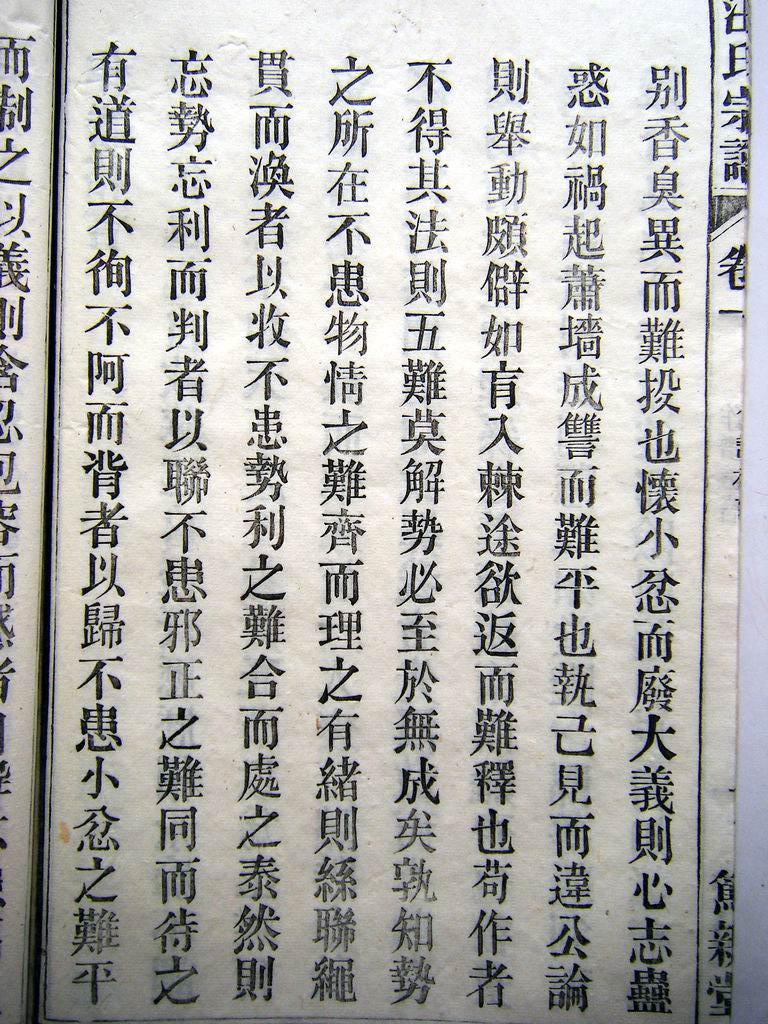 氏宗譜 卷一
別香臭異而難投也懷小忿而廢大義則心志蠱
惑如禍起蕭墻成讐而難平也執己見而違公論
則舉動頗僻如肓入棘途欲返而難釋也苟作者
不得其法則五難莫解勢必至於無成矣孰知勢
之所在不患物情之難齊而理之有緒則絲聯繩
貫而渙者以收不患勢利之難合而處之泰然則
忘勢忘利而判者以聯不患邪正之難同而待之
有道則不徇不阿而背者以歸不患小忿之難平
而制之以義則含忍包容而惑者